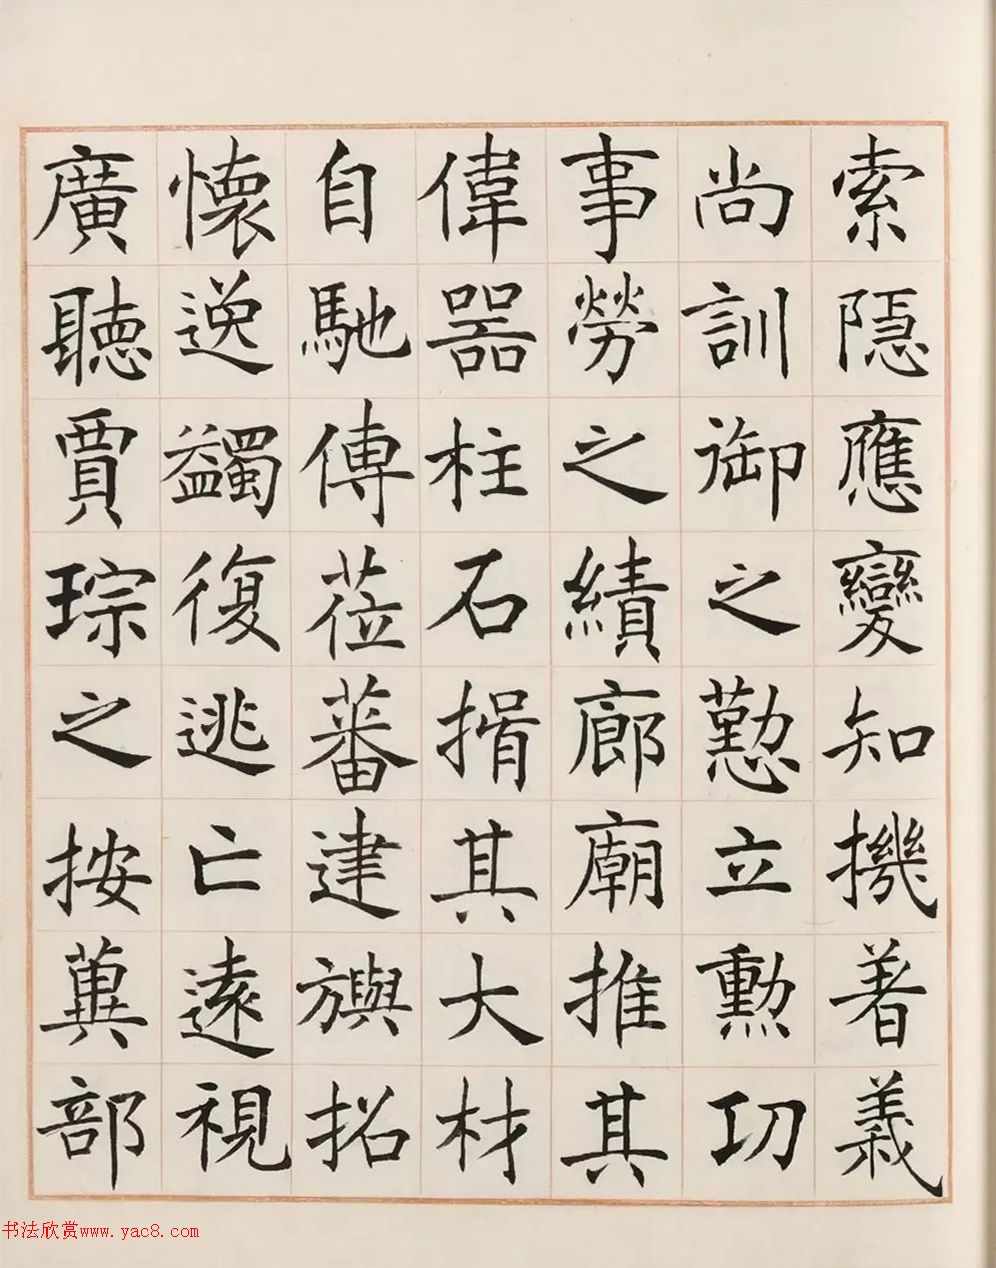 索隱應變知機著義
尚訓御之懃立勳功
事勞之績廊廟推其
偉器柱石揖其大材
自馳傳莅蕃建旟拓
懷逸蠲復逃亡遠視
廣聽賈琮之按冀部
书法欣赏www.yac8.com